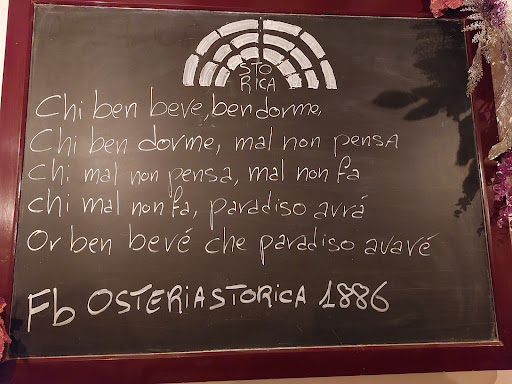 STO
RICA
Chi ben beve, ben dorme,
Chi ben dorme, mal non pensa
Chi mal non pensa, mal non fa
chi mal non fa, paradiso avrá
Or ben bevé che paradiso avavé
Fb OSTERIASTORICA 1886